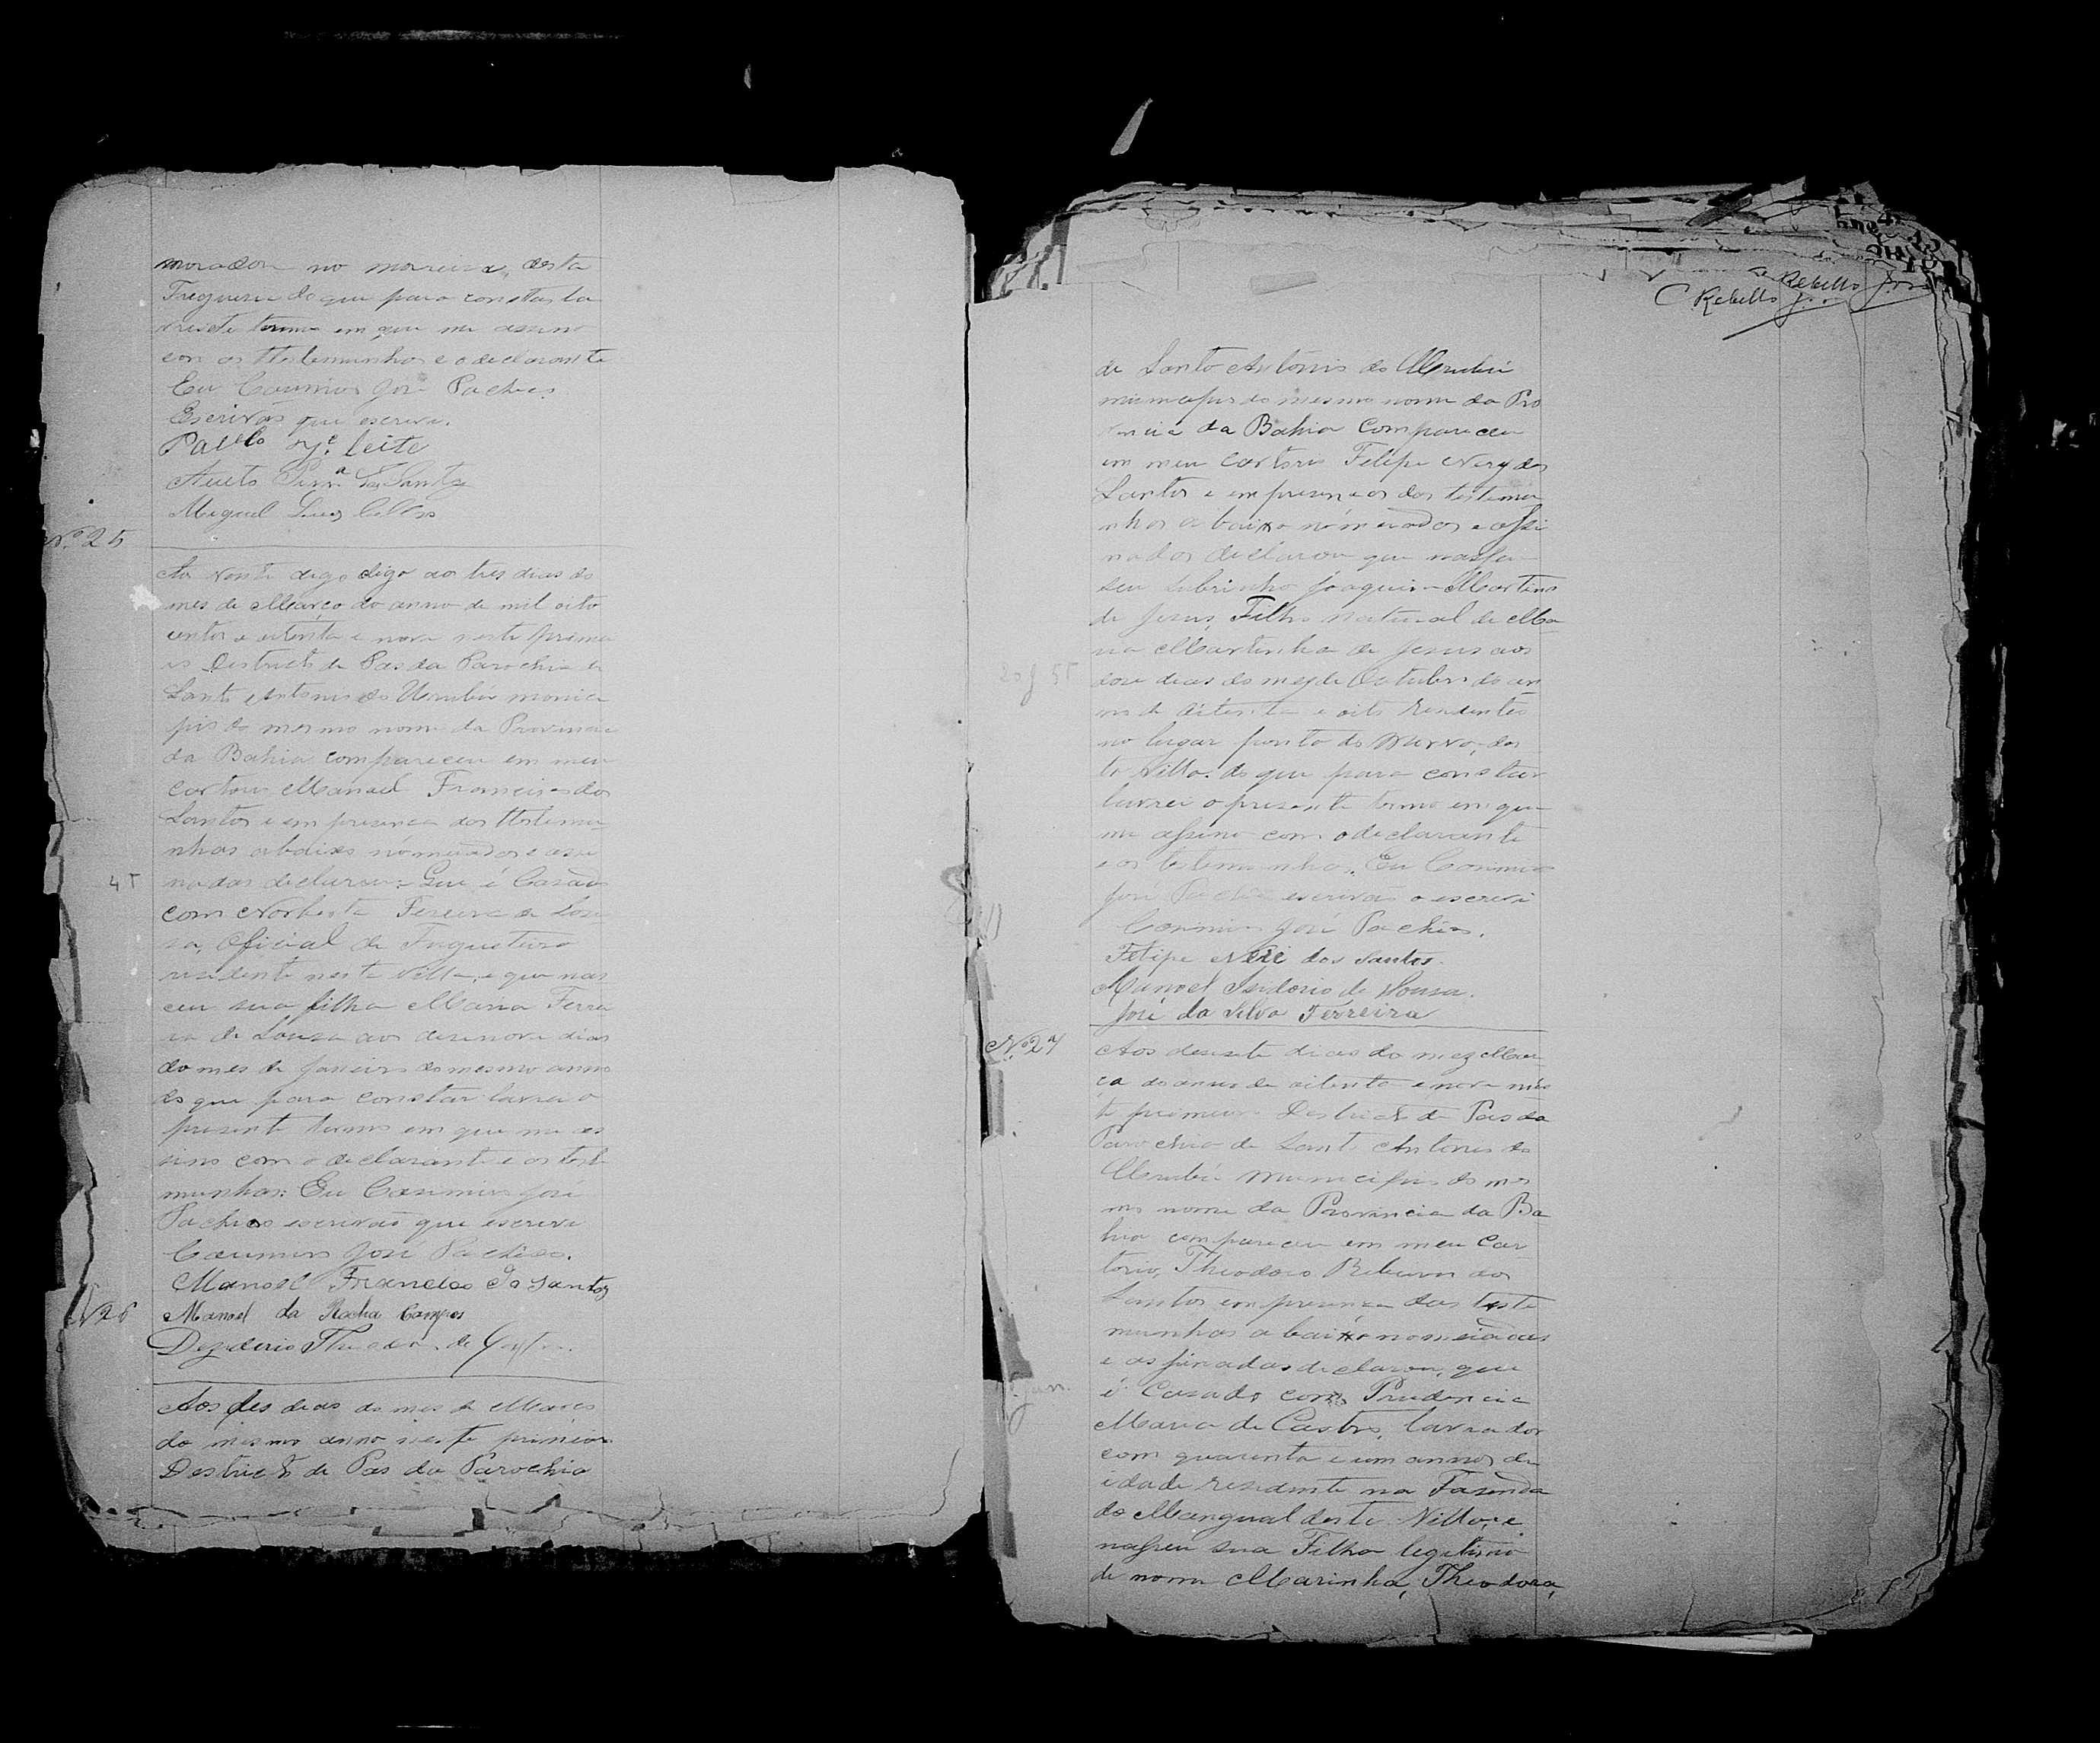 morador no moreira, desta
Freguesia do que para constar la
vrei este termo em que me assino
com as testemunhas e o declarante
Eu Casimiro José Pachêco
Escrivão que escrevi.
Leite
Miguel Luis
Nº 25
digo digo ao tres dias do
mes de Março do anno de mil oito
centos e oitenta e nove neste primei
ro Destricto de Pas da Parochia de
Santo Antonio do Urubú monici
pio do mesmo nome da Provincia
da Bahia compareceu em meu
Cartorio Manoel Francisco dos
Santos e em presenca das testemu
nhas abaixo nómeiados e assi
nadas declarou: Que é Casado
com Norberta Pereira de Sou
sa, Oficial de Fugueteiro
residente nesta Villa, e que nas
ceu sua filha Maria Ferrei
ra de Sousa aos desenove dias
do mes de Janeiro do mesmo anno
do que para constar lavrei o
presente termo em que me as
sino com o declarante e os teste
munhas: Eu Casimiro José
Pachêco escrivão que escrevi
Casimiro José Pachêco.
Manoel Francisco Do Santos
Manoel da Rocha Campos
Deziderio de
N 26
Aos des dias do mes de Março
do mesmo anno neste primeiro
Destricto de Pas da Parochia
C Rebello
Rebello
de Santo Antonio do Urubú
municipio do mesmo nome da Pro
vincia da Bahia Compareceu
em meu Cartorio Felipe Nery dos
Santos e em presenca das testemu
nhas abaixo nómeiados e assi
nados declarou que nasceu
seu Subrinho Joaquim Martins
de Jesus, Filho natural de Ma
ria Martinha de Jesus aos
dose dias do mez de Outubro do an
no de Oitenta e oito residente
no lugar ponto do Murro, des
ta Villa. do que para constar
lavrei o presente termo em que
me assino com o declarante
e as testemunhas. Eu Casimiro
José Pachêco escrivão o escrevi
Casimiro José Pachêco.
Felipe Neri dos Santos
Manoel de Sousa.
José da Silva Ferreira
Nº 27
Aos desesete dias do mez Mar
ço do anno de oitenta e nove nes
te primeiro Destricto de Pas da
Parochia de Santo Antonio do
Urubú Municipio do mes
mo nome da Provincia da Ba
hia compareceu em meu Car
torio, Theodoro Ribeiro dos
Santos em presenca das teste
munhas abaixo nomeiadas
e assinadas declarou, que
é Casado com Prudencia
Maria de Castro, lavrador
com quarenta e um annos de
idade residente na Fasenda
do Mangual desta Villa, e
nasceu sua Filha legitima
de nome Marinha, Theodora,